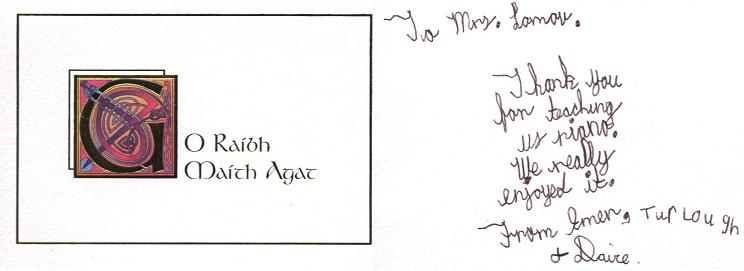 GO Raibh
Maith Agat
To Mrs. Lamov.
Thank you
for teaching
us piano.
We really
enjoyed it.
From Emer, Turlough
+ Daire.